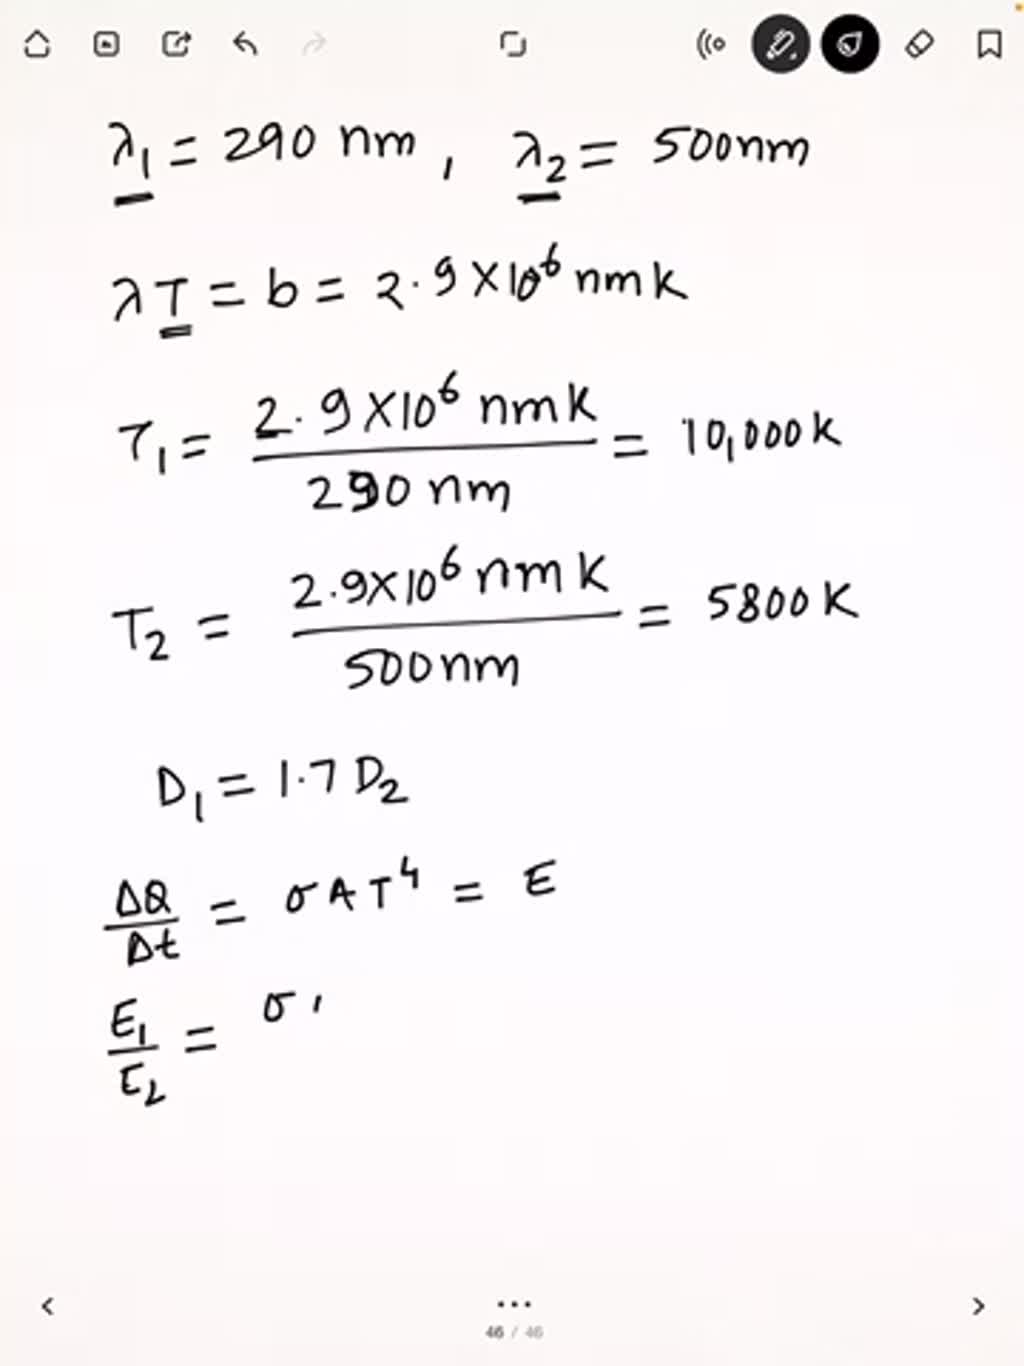 λ₁ = 290 nm, λ₂ = 500nm
λT = b = 2.9 X10⁶ nm k
T₁ = 2.9 X10⁶ nm K / 290 nm = 10,000 k
T₂ = 2.9X10⁶ nm K / 500nm = 5800 K
D₁ = 1.7 D₂
ΔQ/Δt = σ A T⁴ = E
E₁/E₂ = σ
46 / 46